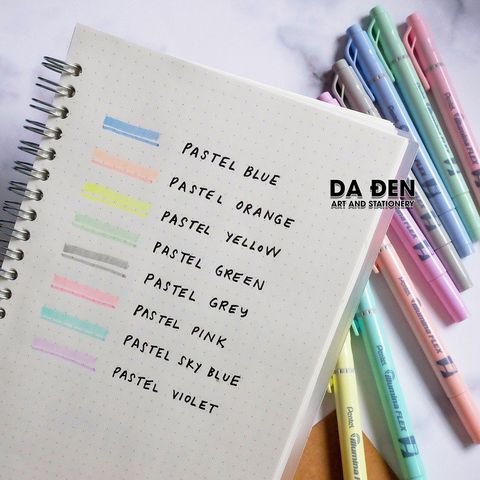 PASTEL BLUE
PASTEL ORANGE
PASTEL YELLOW
PASTEL GREEN
PASTEL GREY
PASTEL PINK
PASTEL SKY BLUE
PASTEL VIOLET
DA ĐEN
ART AND STATIONERY
Pentel illumina FLEX
Pentel illumina FLEX
Pentel illumina FLEX